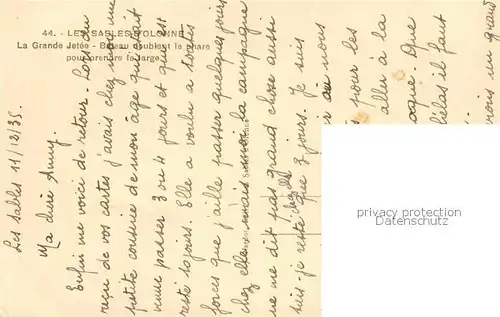 44. - LES SABLES D'OLONNE
La Grande Jetée - Bateau doublant le phare
pour prendre le large
Les Sables 11/12/35.
Ma chère Anny.
Enfin me voici de retour - Lors du
reçu de vos cartes j'avais chez moi une
petite cousine de mon âge qui était
venue passer 3 ou 4 jours et qui est
resté 10 jours. Elle a voulu a toutes
forces que j'aille passer quelques jours
chez elle mais moi la campagne
ne me dit pas grand chose aussi
suis-je resté chez elle que 3 jours. Je suis
où nous
pour les
allée à la
Que
hélas il faut
un grand
privacy protection
VDM